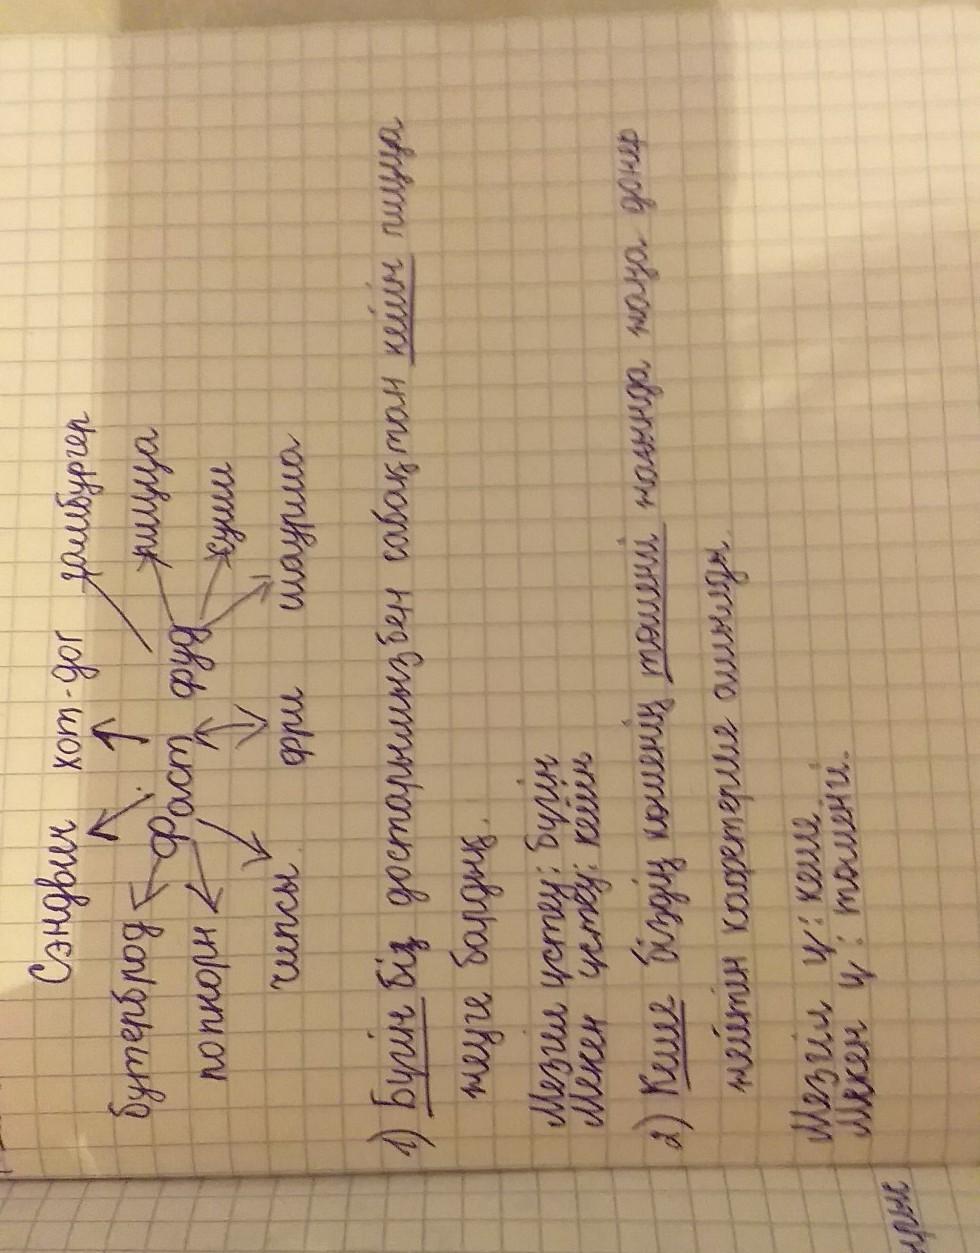 Сэндвич хот-дог гамбургер
бутерброд пицца
Фаст фуд
попкорн суши
чипсы. фри шаурма
1) Бүгін біз достарымызбен сабақтан кейін пицца
жеуге бардық.
Мезгіл үстеу: бүгін
Мекен үстеу: кейін
2) Кеше біздің көшенің төмені жағында жаңа донер
жейтін кафетерие ашылды.
Мезгіл ү: кеше
Мекен ү: төмені.